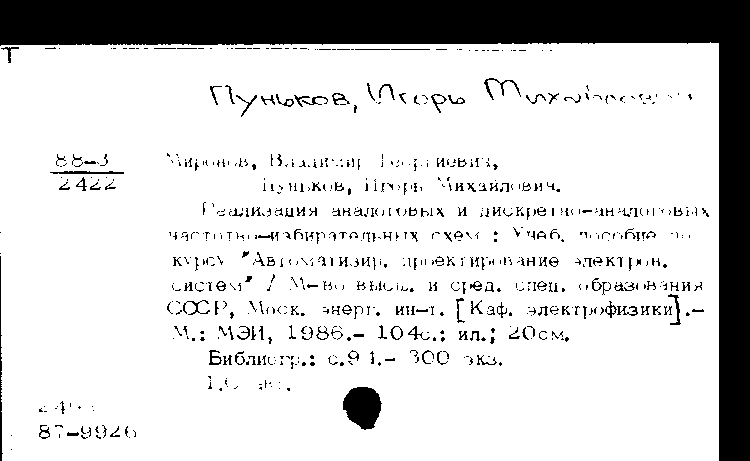 Т
Пуньков, Игорь Михайлович
88-3 Миронов, Владимир Георгиевич,
2422 Пуньков, Игорь Михайлович.
Реализация аналоговых и дискретно-аналоговых
частотно-избирательных схем : Учеб. пособие по
курсу "Автоматизир. проектирование электрон.
систем" / М-во высш. и сред. спец. образования
СССР, Моск. энерг. ин-т. [Каф. электрофизики].-
М.: МЭИ, 1986.- 104с.: ил.; 20см.
Библиогр.: с.91.- 300 экз.
87-9926